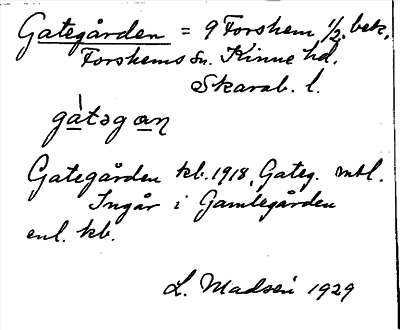 Gategården = 9 Forshem 1/2. bek.
Forshems sn. Kinne hd.
Skarab. l.
gàtəgan
Gategården kb. 1918, Gateg. mtl.
Ingår i Gamlegården
enl. kb.
L. Madsén 1929